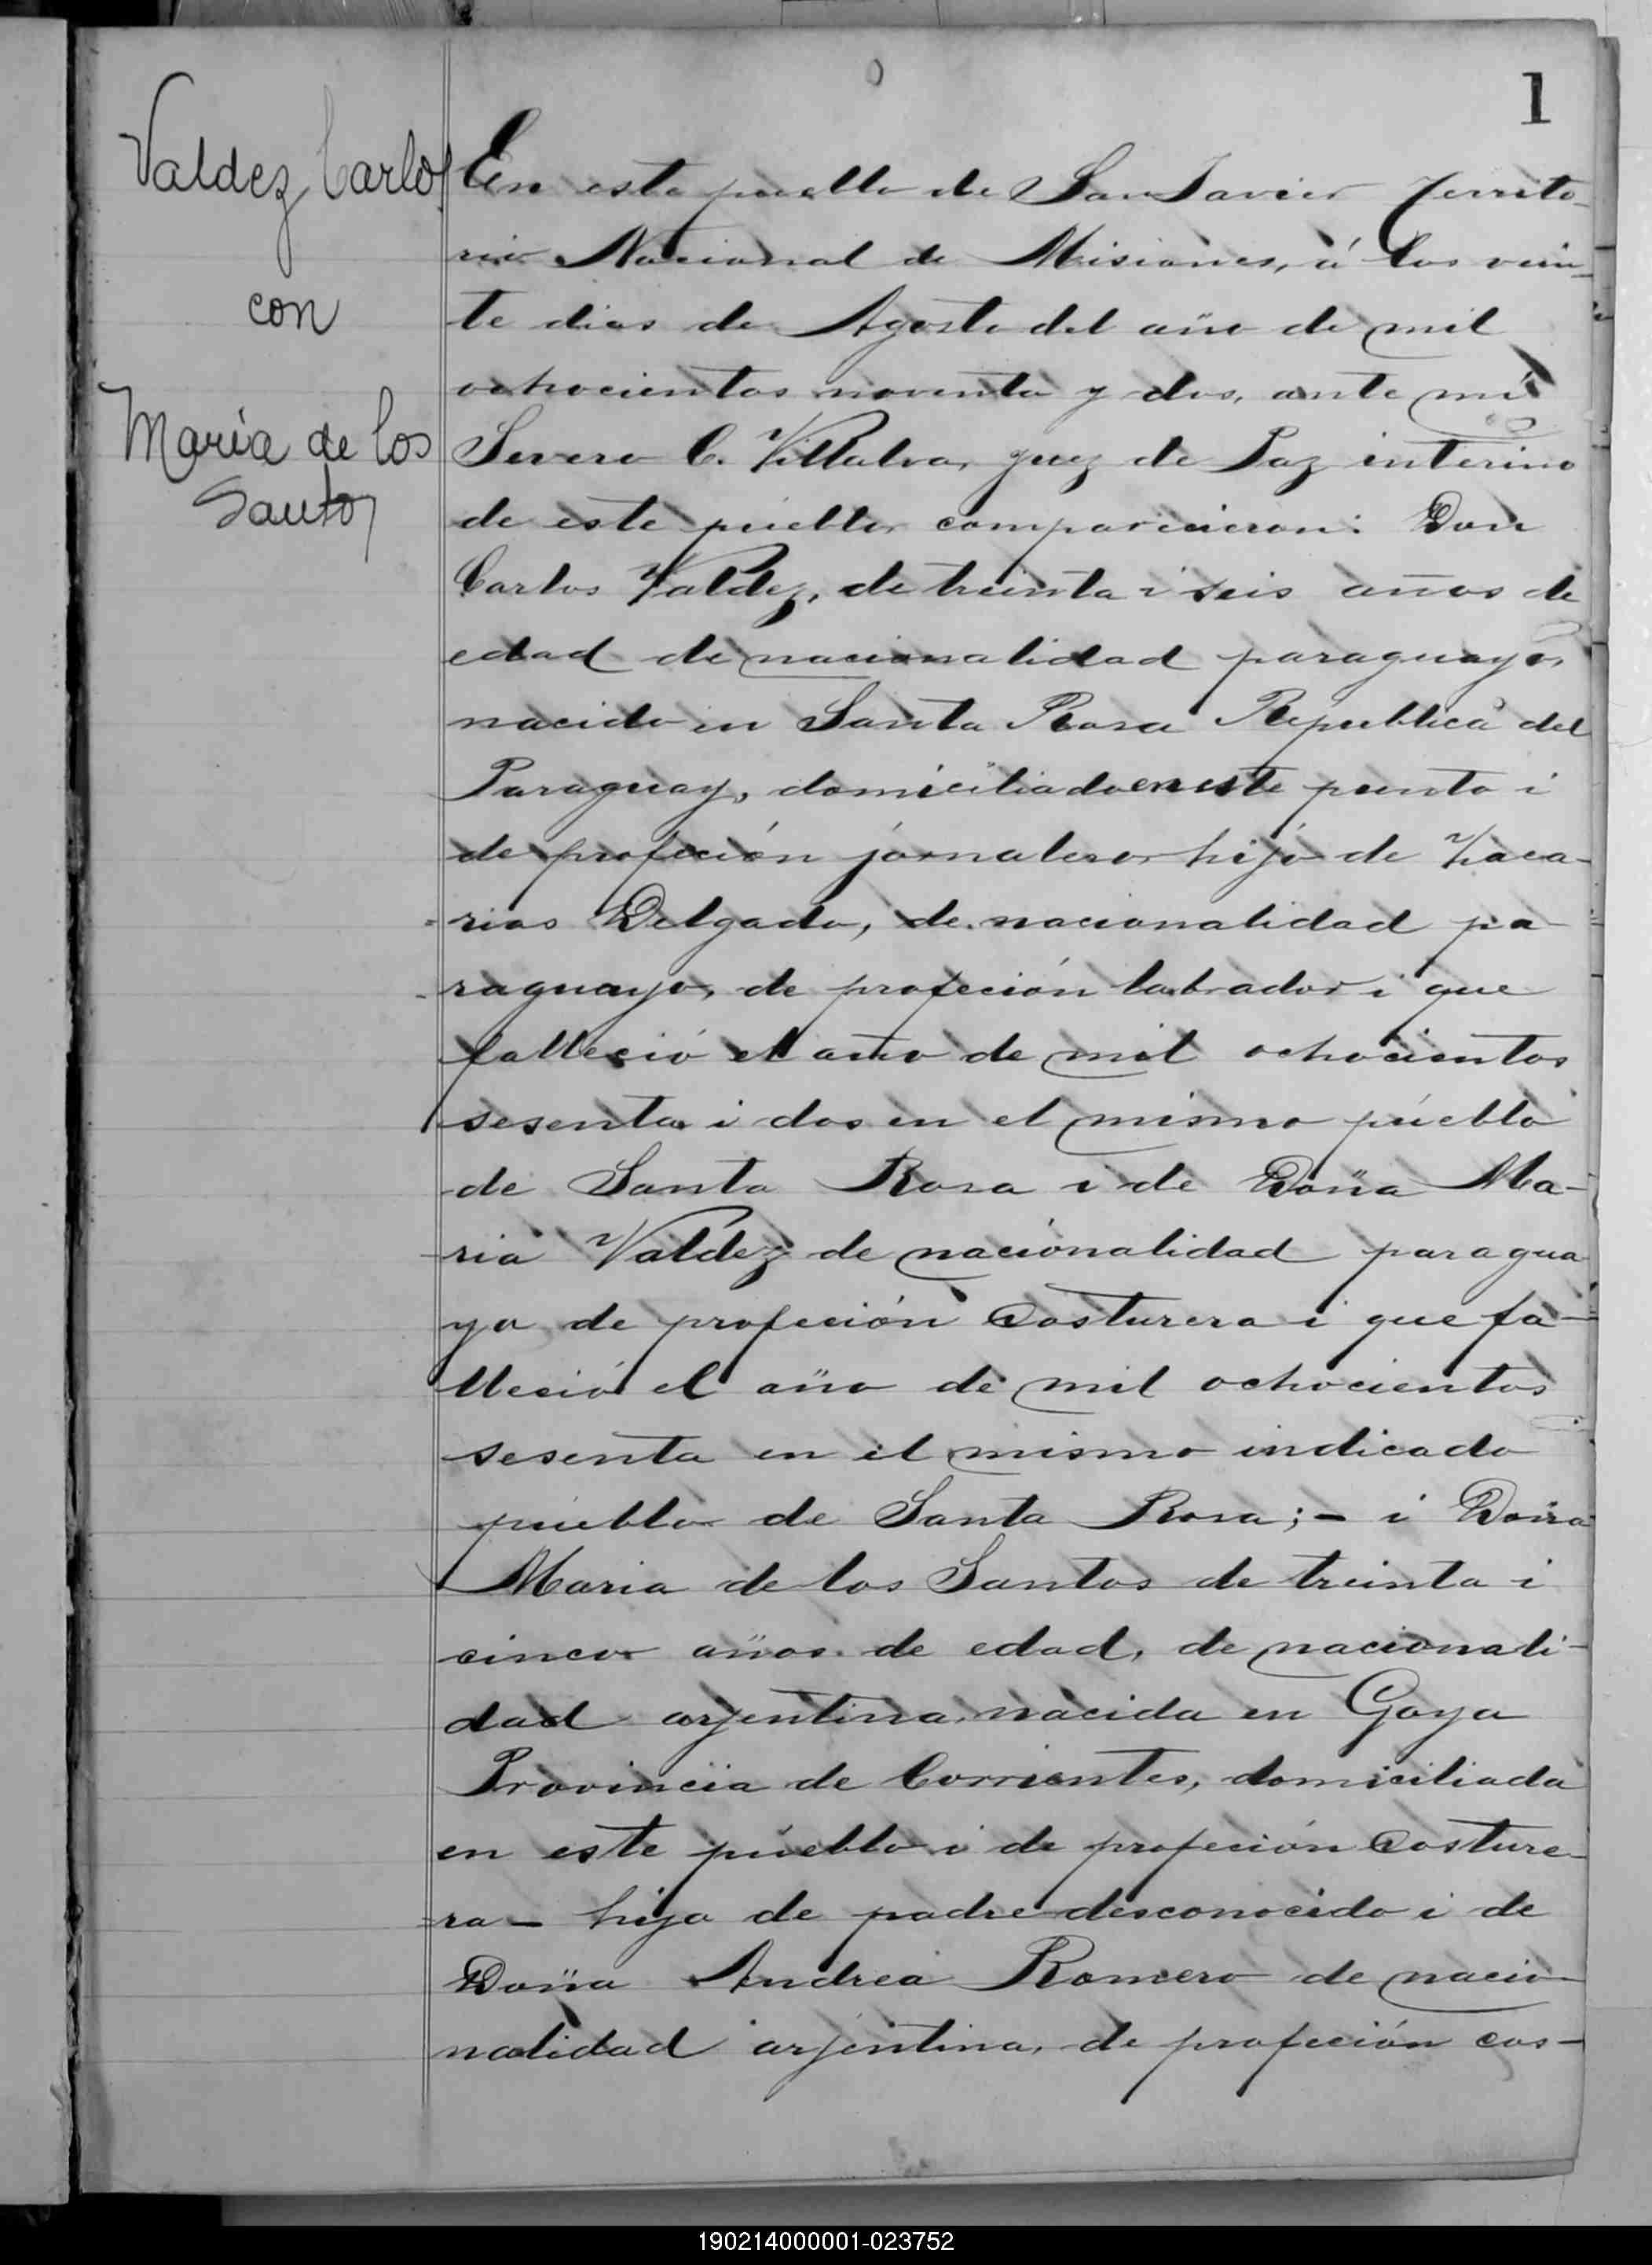 1
Valdez, Carlos
con
María de los
Santos
En este pueblo de San Javier Territo-
rio Nacional de Misiones, á los vein-
te dias de Agosto del año de mil
ochocientos noventa y dos, ante mí
Severo C. Villalva, Juez de Paz interino
de este pueblo, comparecieron: Don
Carlos Valdez, de treinta i seis años de
edad de nacionalidad paraguayo,
nacido en Santa Rosa Republica del
Paraguay, domiciliado en este punto i
de profeción jornalero hijo de Zaca-
rias Delgado, de nacionalidad pa-
raguayo, de profeción labrador i que
falleció el año de mil ochocientos
sesenta i dos en el mismo pueblo
de Santa Rosa i de Doña Ma-
ria Valdez de nacionalidad paragua
ya de profeción costurera i que fa-
lleció el año de mil ochocientos
sesenta en el mismo indicado
pueblo de Santa Rosa; - i Doña
Maria de los Santos de treinta i
cinco años de edad, de nacionali-
dad arjentina, nacida en Goya
Provincia de Corrientes, domiciliada
en este pueblo i de profeción costure-
ra - hija de padre desconocido i de
Doña Andrea Romero de nacio-
nalidad arjentina, de profeción cos-
190214000001-023752